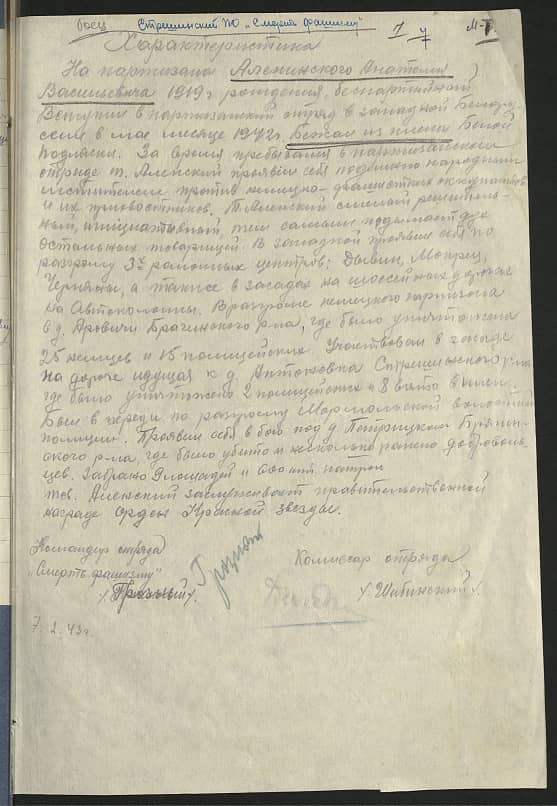 боец Стрешинский ПО "Смерть фашизму" 1 7 М-Б.
Характеристика
На партизана Аленинского Анатолия
Васильевича 1919г рождения, беспартийный
Вступил в партизанский отряд в западной Белорус-
сии в мае месяце 1942г. Бежал из плена Белой
Подляски. За время пребывания в партизанском
отряде т. Аленский проявил себя подлинно народным
мстителем против немецко-фашистских оккупантов
и их приховостников. Т. Аленский смелый решитель-
ный, инициативный, тем самым подымает дух
остальных товарищей. В западной проявил себя по
разгрому 3х районных центров: Дывин, Мокраны,
Черняны, а также в засадах на шоссейных дорогах
на Автоколонны. В разгроме немецкого гарнизона
в д. Аревичи Брагинского р-на, где было уничтожено
25 немцев и 15 полицейских. Участвовал в засаде
на дороге идущая к д. Антоновка Стрешинского р-на
где было уничтожено 2 полицейских и 8 взято в плен.
Был в по разгрому волостной
полиции. Проявил себя в бою под д. Петрицком
ского р-на, где было убито и несколько ранено доброволь-
цев. Забрано 9 лошадей и 600 шт. патрон
тов. Аленский заслуживает правительственной
награде Орден Красной звезды.
Командир отряда
"Смерть фашизму"
/Грозный/.
Комиссар отряда
/Шибинский/.
7. 2. 43г.